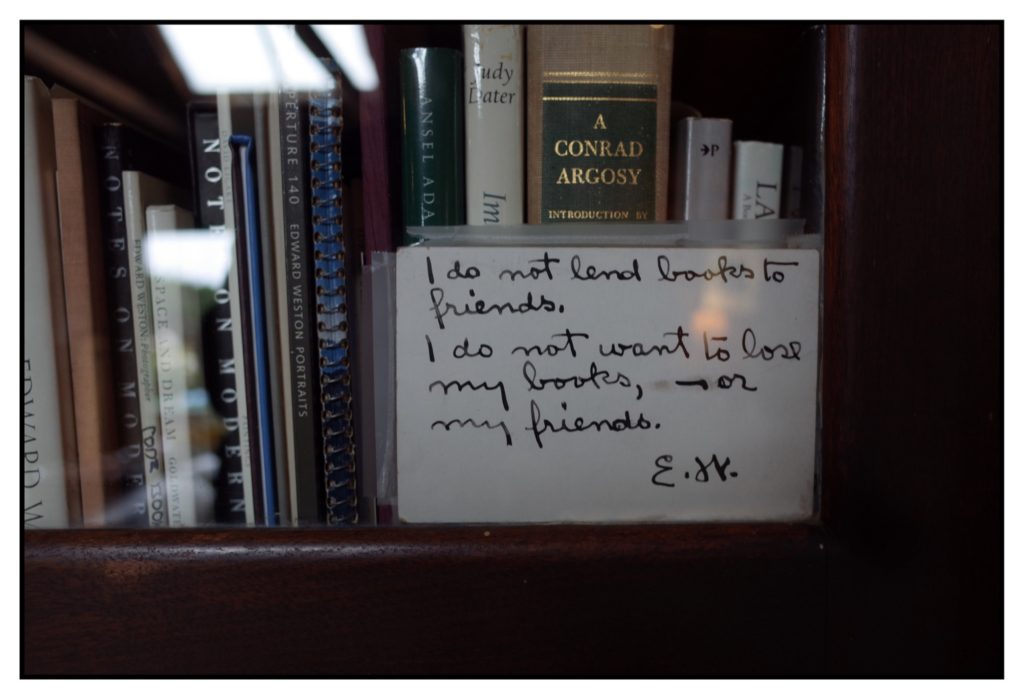 EDWARD W
NOTES ON MODE
EDWARD WESTON: Photographer
SPACE AND DREAM GOLDWATE
NOT
ON MODERN
PERTURE 140 EDWARD WESTON PORTRAITS
ANSEL ADA
Judy
Dater
Im
A
CONRAD
ARGOSY
INTRODUCTION BY
→P
LA
I do not lend books to
friends.
I do not want to lose
my books, — or
my friends.
E.W.